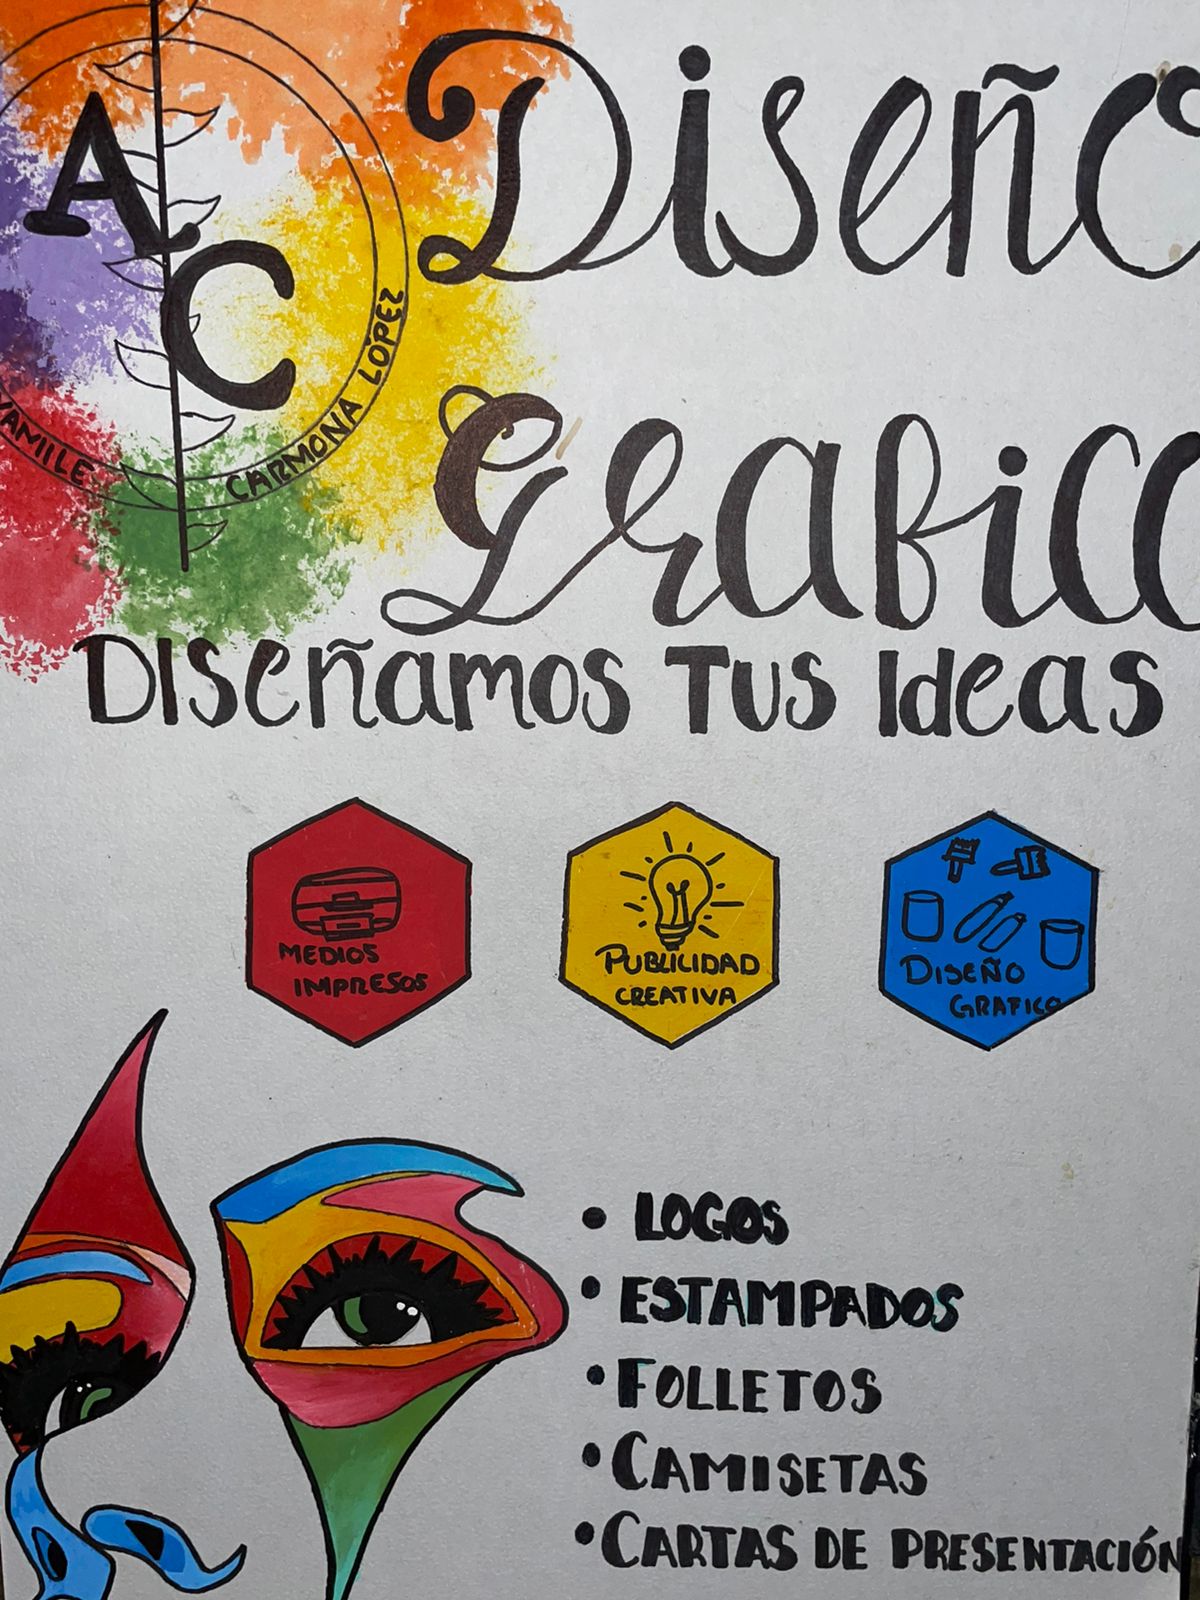 A
C
YAMILE CARMONA LÓPEZ
Diseño
Grafico
DISEÑAMOS TUS IDEAS
MEDIOS
IMPRESOS
PUBLICIDAD
CREATIVA
DISEÑO
GRAFICO
• LOGOS
• ESTAMPADOS
• FOLLETOS
• CAMISETAS
• CARTAS DE PRESENTACIÓN